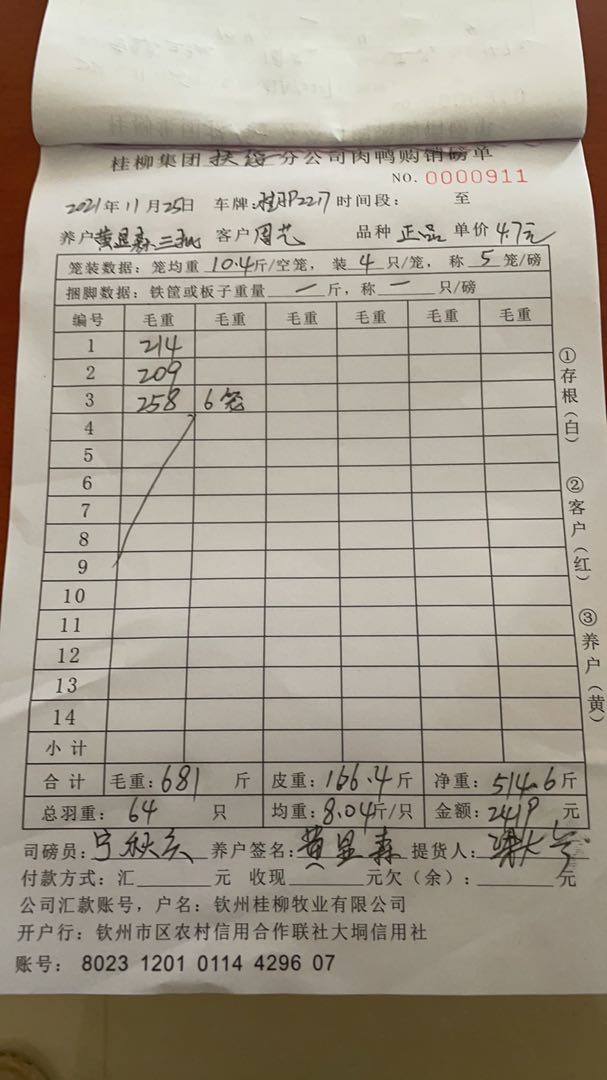 桂柳集团 分公司肉鸭购销磅单
NO. 0000911
2021年11月25日 车牌: 桂 P2217 时间段: 至
养户 黄显森 客户 周艺 品种 正品 单价 4.7元
笼装数据: 笼均重 10.4 斤/空笼, 装 4 只/笼, 称 5 笼/磅
捆脚数据: 铁筐或板子重量 一 斤, 称 一 只/磅
编号 毛重 毛重 毛重 毛重 毛重 毛重
1 214
2 209
3 258 6笼
4
5
6
7
8
9
10
11
12
13
14
小计
合计 毛重: 681 斤 皮重: 166.4 斤 净重: 514.6 斤
总羽重: 64 只 均重: 8.04 斤/只 金额: 2419 元
司磅员: 养户签名: 黄显森 提货人:
付款方式: 汇 元 收现 元欠(余): 元
公司汇款账号, 户名: 钦州桂柳牧业有限公司
开户行: 钦州市区农村信用合作联社大垌信用社
账号: 8023 1201 0114 4296 07
①存根(白)
②客户(红)
③养户(黄)